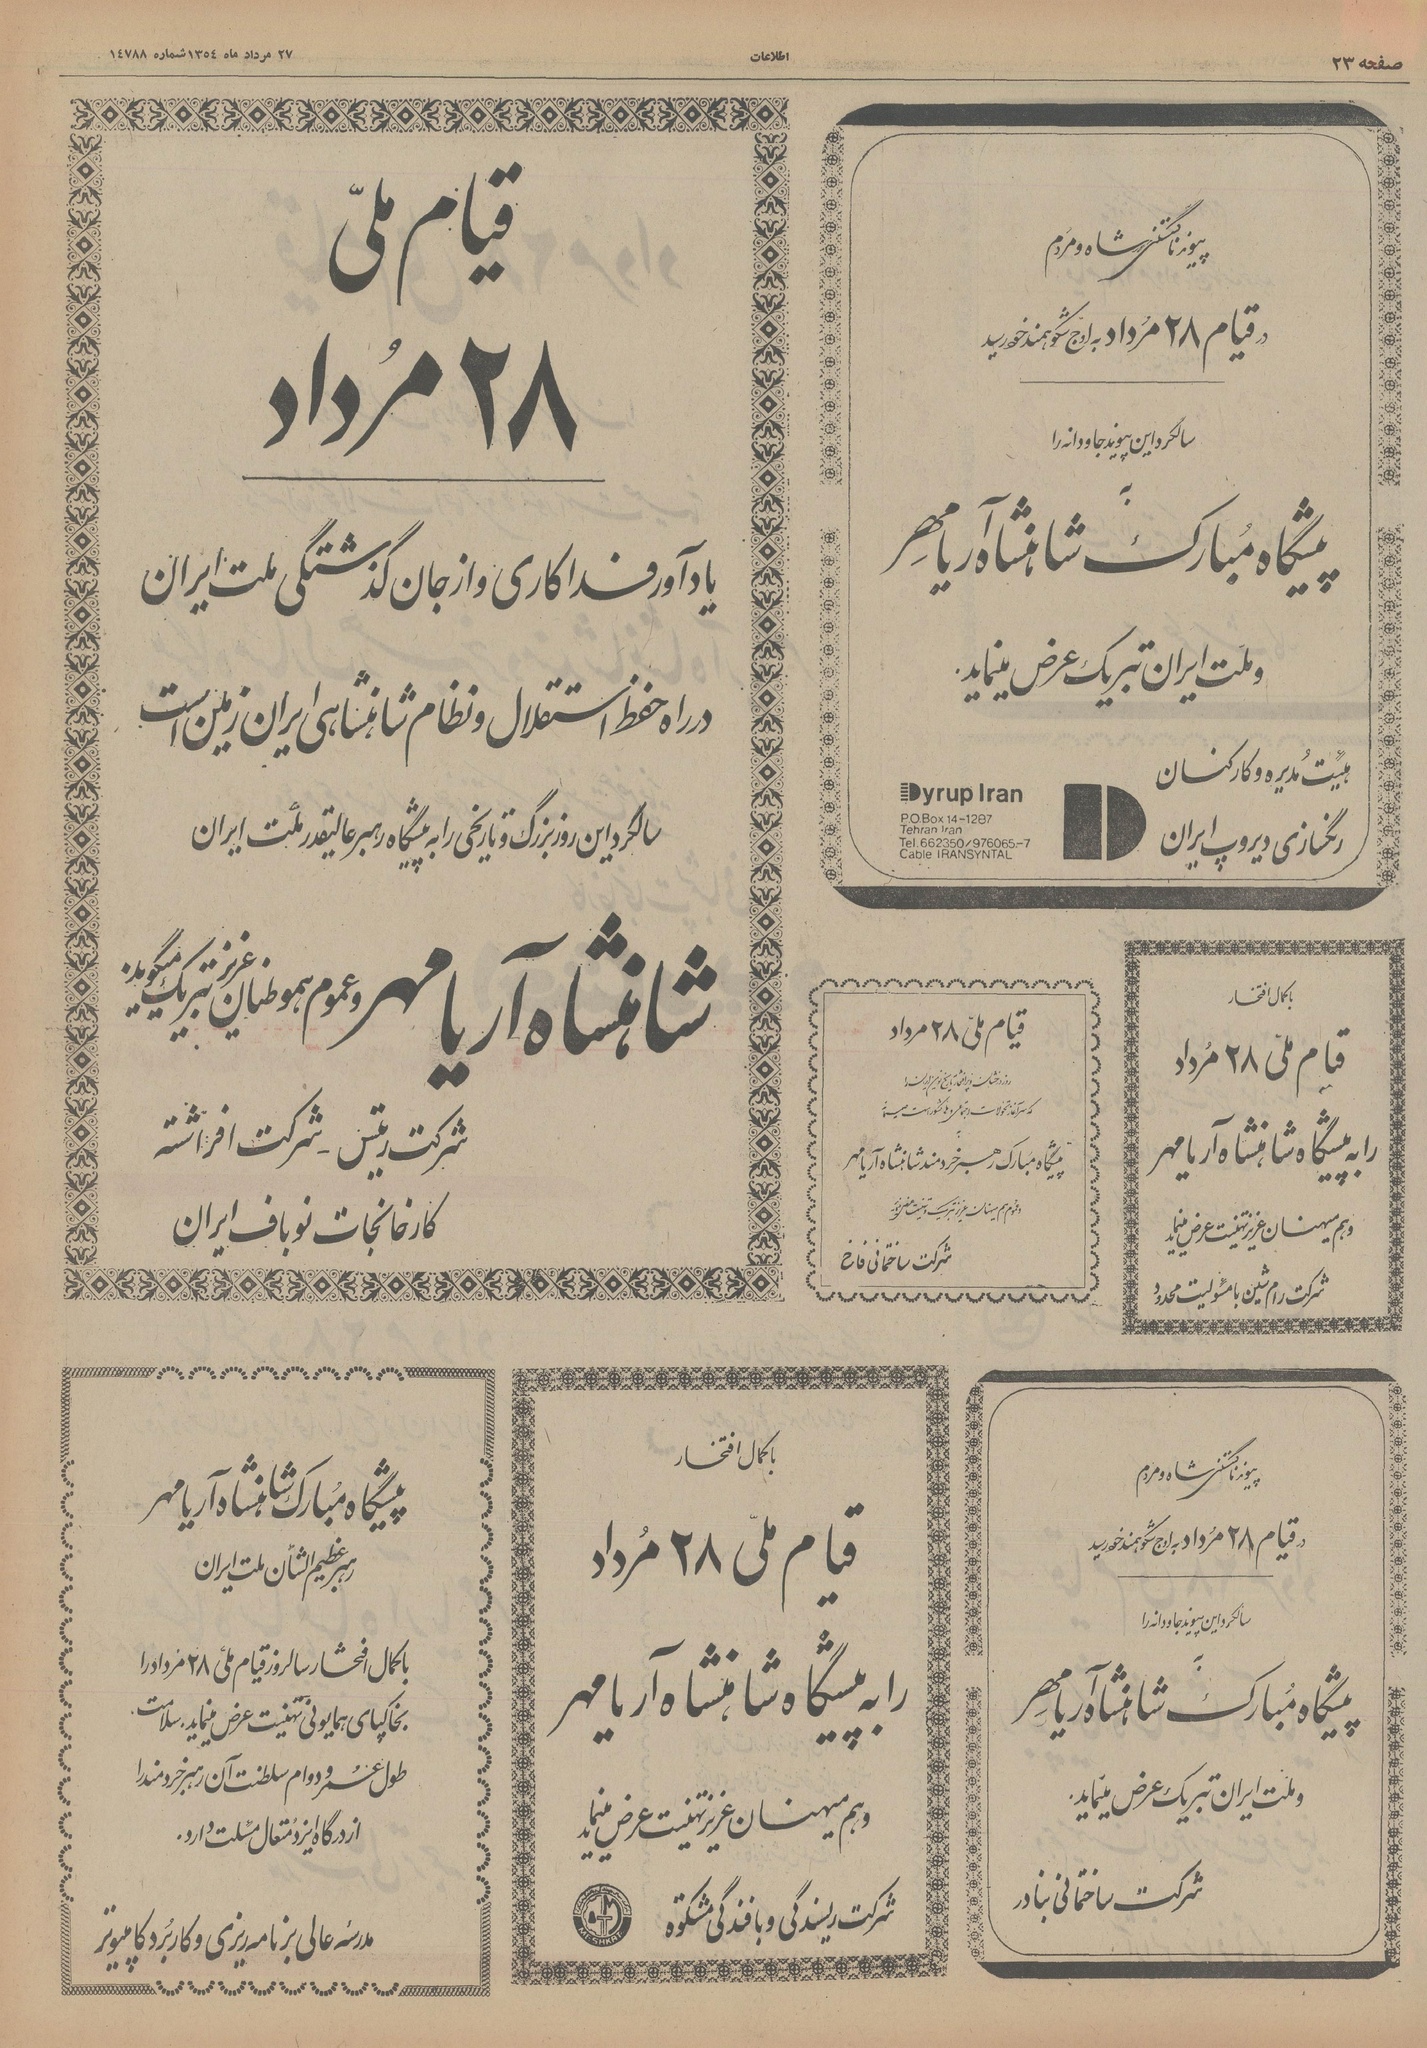 صفحه ۲۳
اطلاعات
۲۷ مرداد ماه ۱۳۵۴ شماره ۱۴۷۸۸
پیوند ناگسستنی شاه و مردم
در قیام ۲۸ مُرداد به اوج شکوهمند خود رسید
سالگرد این پیوند جاودانه را
به
پیشگاه مُبارک شاهنشاه آریامِهر
و ملّت ایران تبریک عرض مینماید.
هیئت مُدیره و کارکنان
رنگسازی دیروپ ایران
Dyrup Iran
P.O.Box 14-1287
Tehran Iran
Tel. 662350/976065-7
Cable IRANSYNTAL
قیام ملّی
۲۸ مُرداد
یادآور فداکاری و از جان گذشتگی ملت ایران
در راه حفظ استقلال و نظام شاهنشاهی ایران زمین است
سالگرد این روز بزرگ و تاریخی را به پیشگاه رهبر عالیقدر ملّت ایران
شاهنشاه آریامهر و عموم هموطنان عزیز تبریک میگوید.
شرکت ریتس - شرکت افراشته
کارخانجات نوباف ایران
با کمال افتخار
قیام ملّی ۲۸ مُرداد
را به پیشگاه شاهنشاه آریامهر
و هم میهنان عزیز تهنیت عرض مینماید
شرکت رام شین با مسئولیت محدود
قیام ملّی ۲۸ مرداد
پیشگاه مبارک رهبر خردمند شاهنشاه آریامهر
شرکت ساختمانی فاخ
پیوند ناگسستنی شاه و مردم
در قیام ۲۸ مُرداد به اوج شکوهمند خود رسید
سالگرد این پیوند جاودانه را
به
پیشگاه مُبارک شاهنشاه آریامِهر
و ملّت ایران تبریک عرض مینماید.
شرکت ساختمانی بنادر
با کمال افتخار
قیام ملّی ۲۸ مُرداد
را به پیشگاه شاهنشاه آریامهر
و هم میهنان عزیز تهنیت عرض مینماید
شرکت ریسندگی و بافندگی مشکوة
MESHKAT
پیشگاه مُبارک شاهنشاه آریامهر
رهبر عظیم الشأن ملت ایران
با کمال افتخار سالروز قیام ملّی ۲۸ مُرداد را
بخاکپای همایونی تهنیت عرض مینماید. سلامت.
طول عمر و دوام سلطنت آن رهبر خردمند را
از درگاه ایزد متعال مسئلت دارد.
مدرسه عالی برنامه ریزی و کاربُرد کامپیوتر